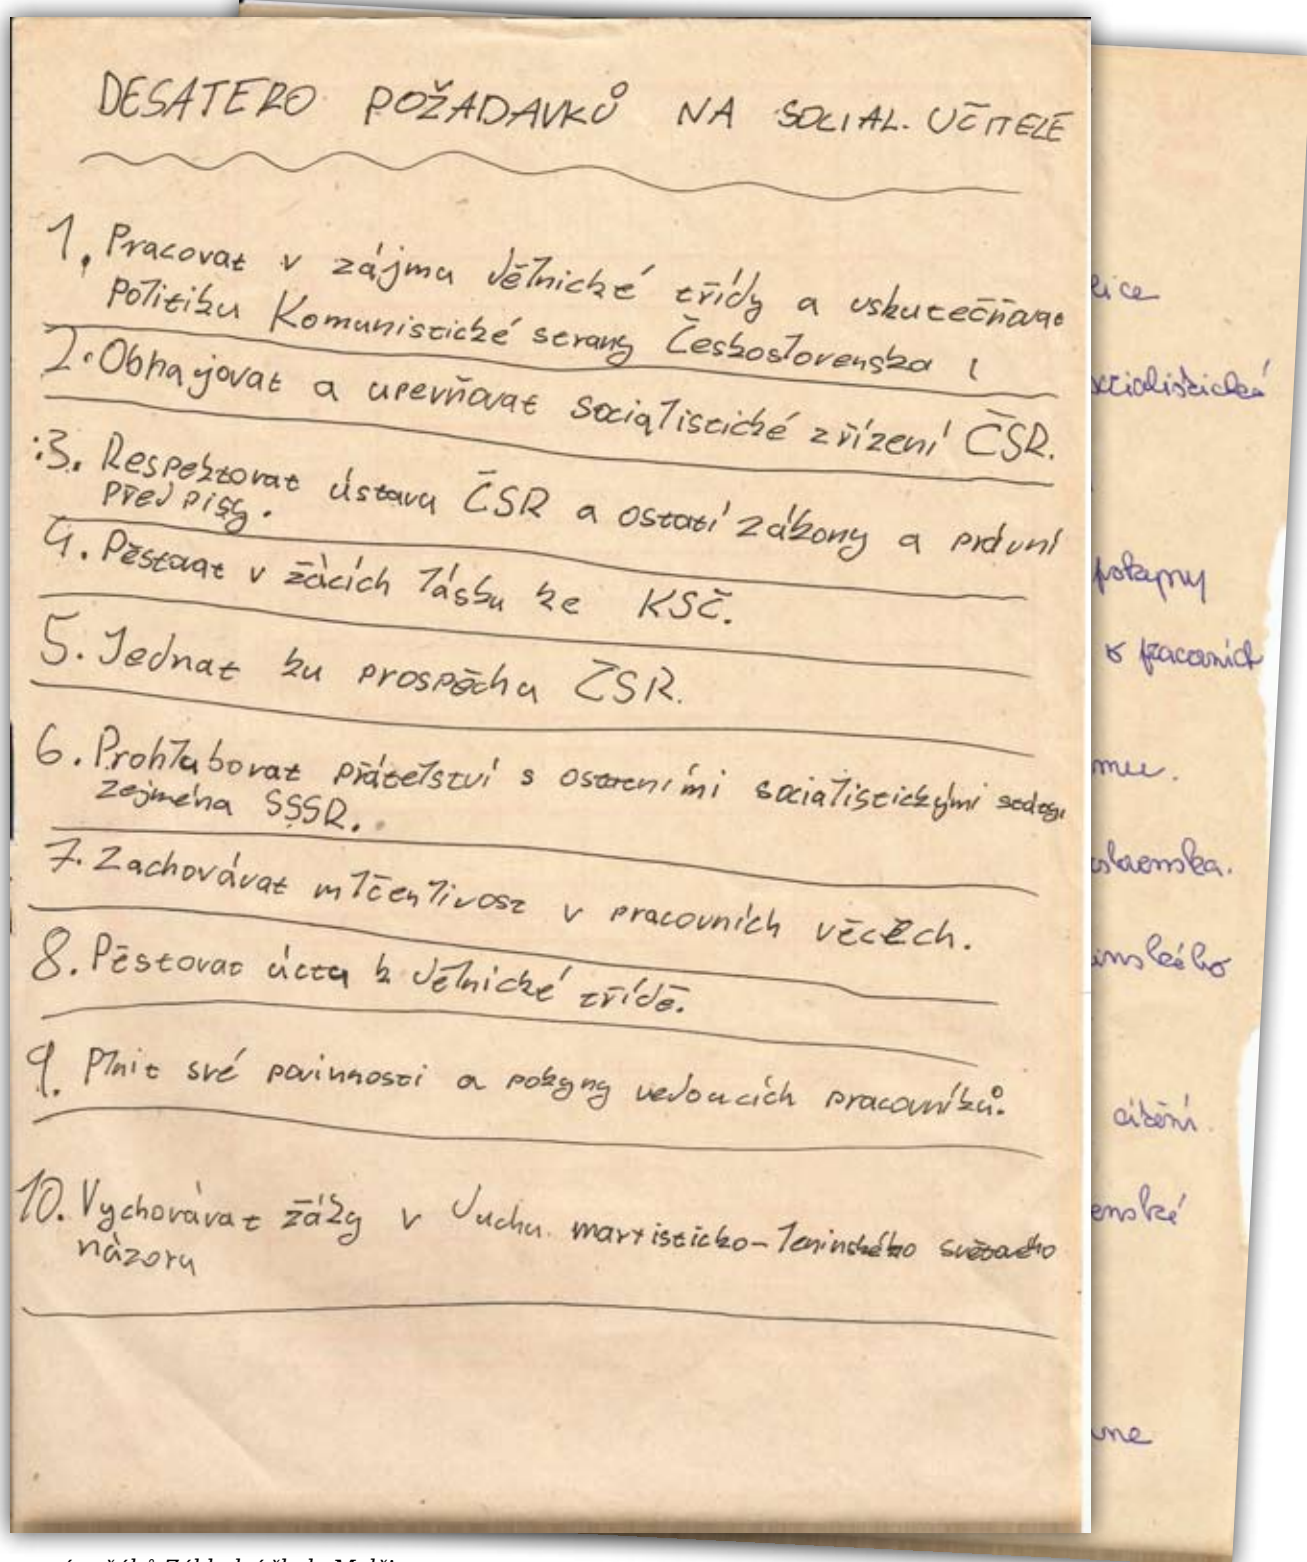 DESATERO POŽADAVKŮ NA SOCIAL. UČITELE
1. Pracovat v zájmu dělnické třídy a uskutečňovat
politiku Komunistické strany Československa !
2. Obhajovat a upevňovat socialistické zřízení ČSR.
3. Respektovat ústavu ČSR a ostatí zákony a právní
předpisy.
4. Pěstovat v žácích lásku ke KSČ.
5. Jednat ku prospěchu ČSR.
6. Prohlubovat přátelství s ostatními socialistickými
zejména SSSR.
7. Zachovávat mlčenlivost v pracovních věcech.
8. Pěstovat úctu k dělnické třídě.
9. Plnit své povinnosti a pokyny vedoucích pracovníků.
10. Vychovávat žáky v duchu marxisticko-leninského světového
názoru
socialistické
pokyny
o pracovních
cítění.